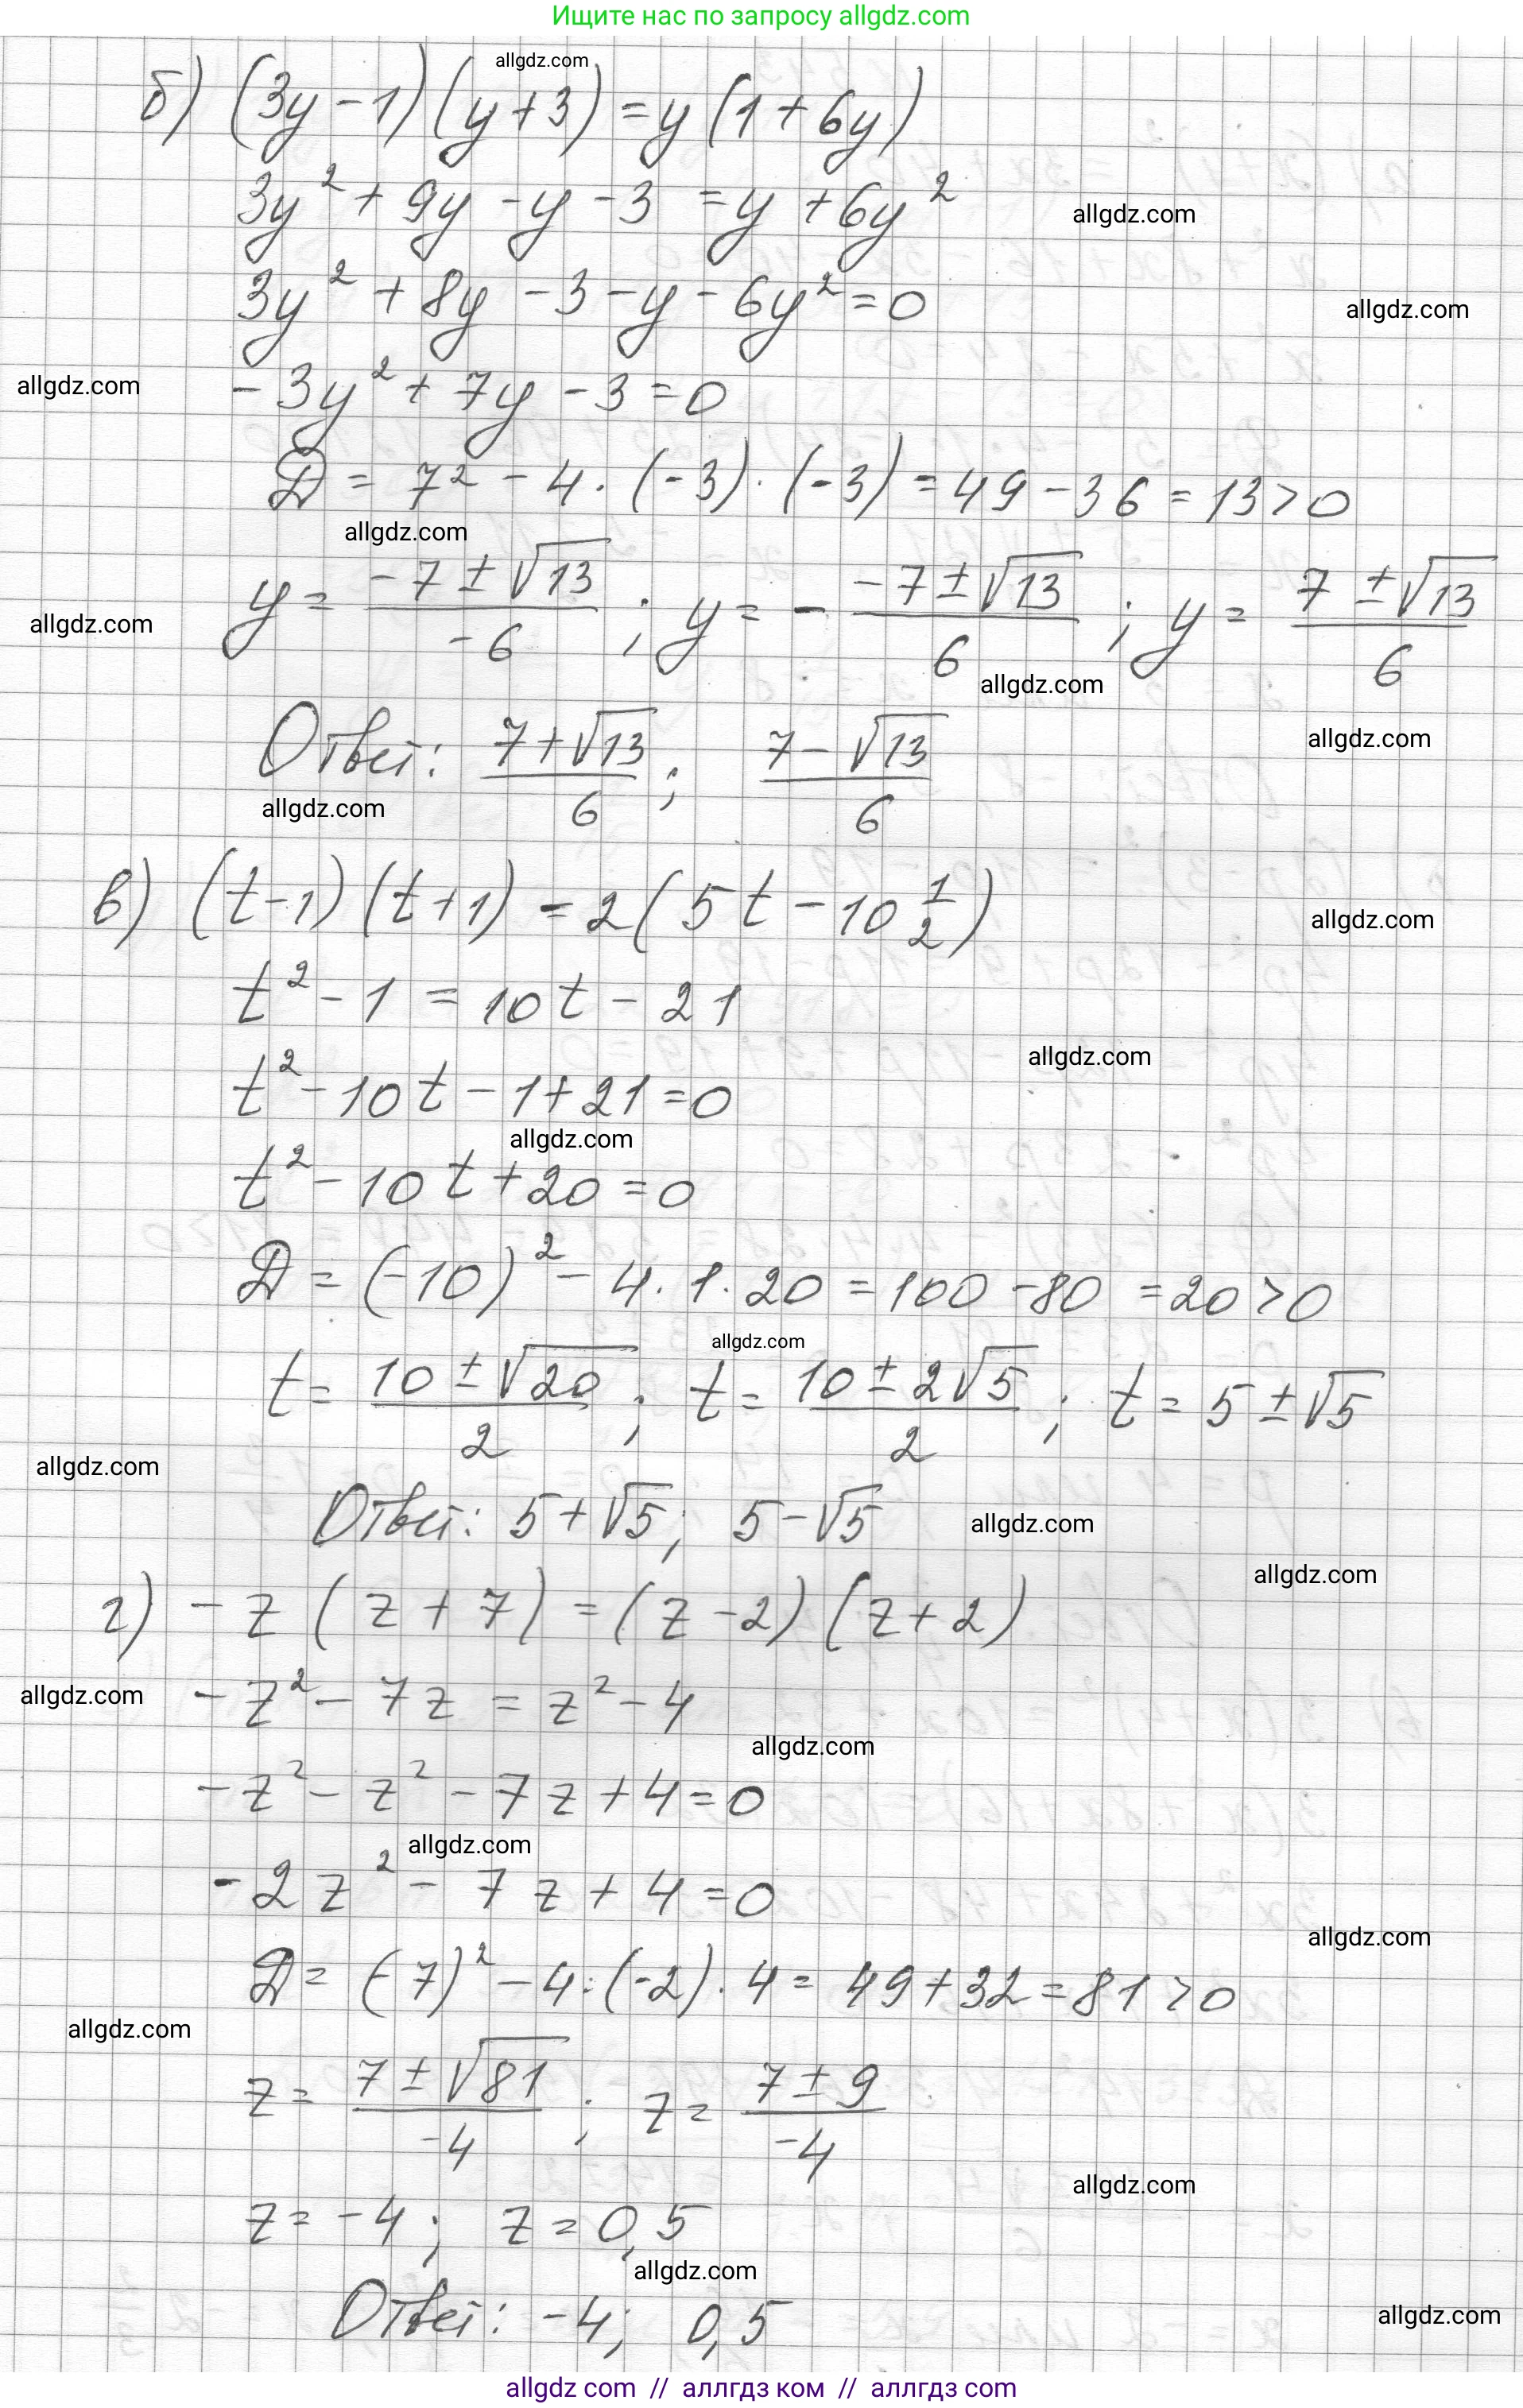 Ищите нас по запросу allgdz.com
allgdz.com
б) (3y - 1)(y + 3) = y(1 + 6y)
3y² + 9y - y - 3 = y + 6y²
allgdz.com
3y² + 8y - 3 - y - 6y² = 0
allgdz.com
allgdz.com
- 3y² + 7y - 3 = 0
D = 7² - 4 · (-3) · (-3) = 49 - 36 = 13 > 0
allgdz.com
allgdz.com
y = (-7 ± √13)/(-6) ; y = - (-7 ± √13)/6 ; y = (7 ± √13)/6
allgdz.com
allgdz.com
Ответ: (7 + √13)/6 ; (7 - √13)/6
allgdz.com
в) (t - 1)(t + 1) = 2(5t - 10 1/2)
allgdz.com
t² - 1 = 10t - 21
allgdz.com
t² - 10t - 1 + 21 = 0
allgdz.com
t² - 10t + 20 = 0
D = (-10)² - 4 · 1 · 20 = 100 - 80 = 20 > 0
allgdz.com
t = (10 ± √20)/2 ; t = (10 ± 2√5)/2 ; t = 5 ± √5
allgdz.com
Ответ: 5 + √5; 5 - √5
allgdz.com
allgdz.com
г) - z(z + 7) = (z - 2)(z + 2)
allgdz.com
- z² - 7z = z² - 4
allgdz.com
- z² - z² - 7z + 4 = 0
allgdz.com
- 2z² - 7z + 4 = 0
allgdz.com
D = (-7)² - 4 · (-2) · 4 = 49 + 32 = 81 > 0
allgdz.com
z = (7 ± √81)/(-4) ; z = (7 ± 9)/(-4)
allgdz.com
z = -4 ; z = 0,5
allgdz.com
Ответ: -4; 0,5
allgdz.com
allgdz com // аллгдз ком // аллгдз com